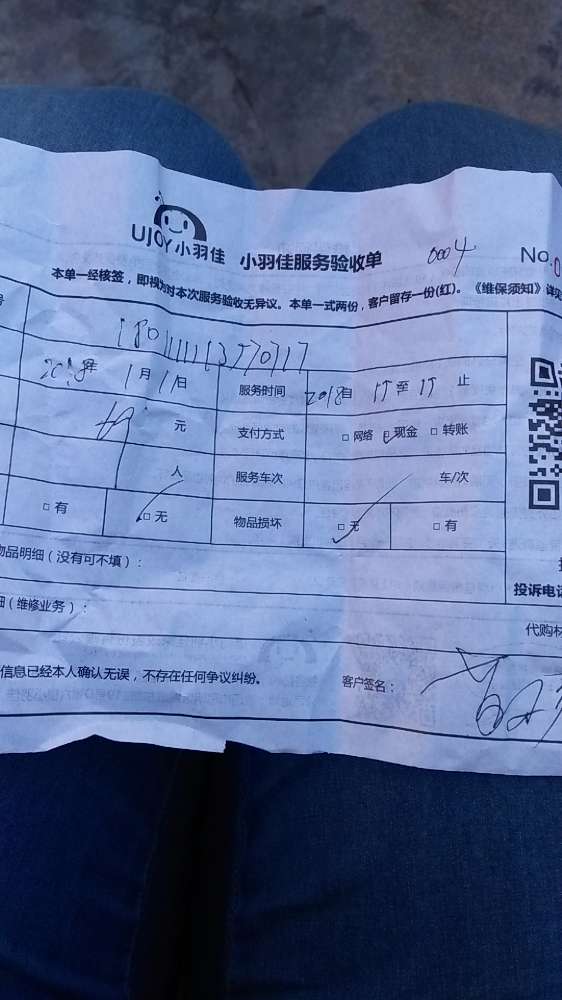 UJOY小羽佳 小羽佳服务验收单 0004 No.0
本单一经核签，即视为对本次服务验收无异议。本单一式两份，客户留存一份(红)。《维保须知》详见
号
年 1月11日 服务时间 2018 至 止
元 支付方式 □ 网络 □ 现金 □ 转账
人 服务车次 车/次
□ 有 □ 无 物品损坏 □ 无 □ 有
物品明细（没有可不填）：
投诉电话
细（维修业务）：
代购材
信息已经本人确认无误，不存在任何争议纠纷。 客户签名：